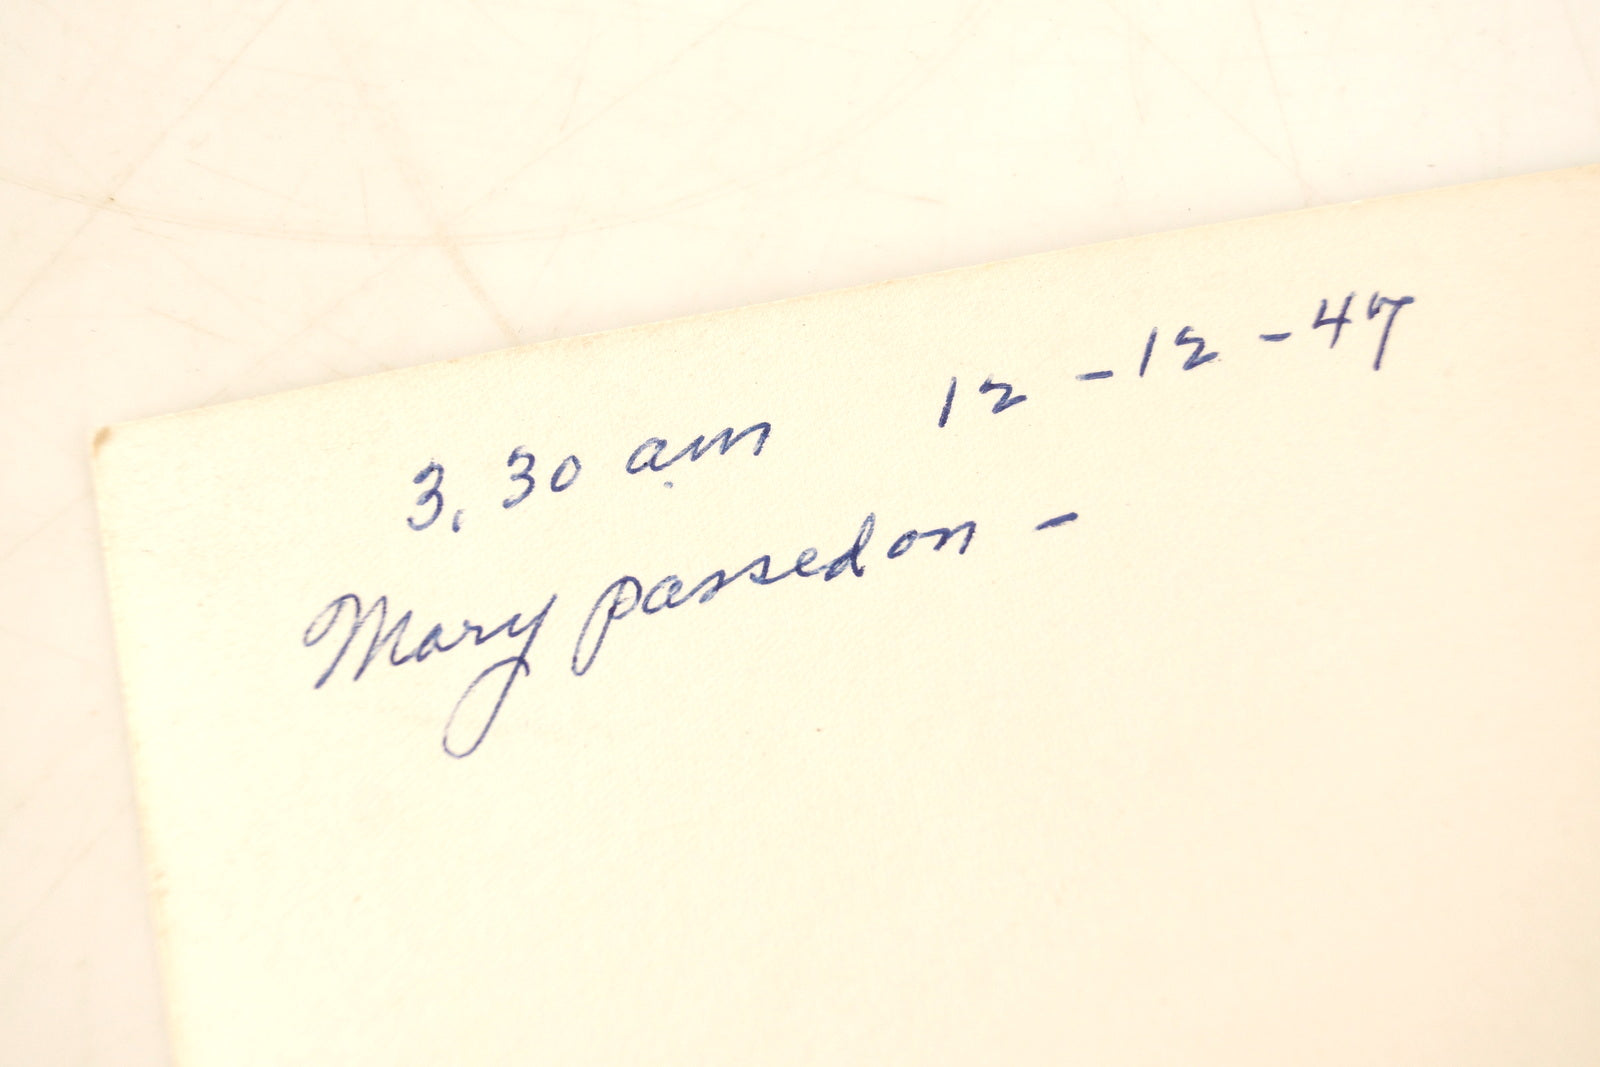 3.30 am 12-12-47
Mary passed on -